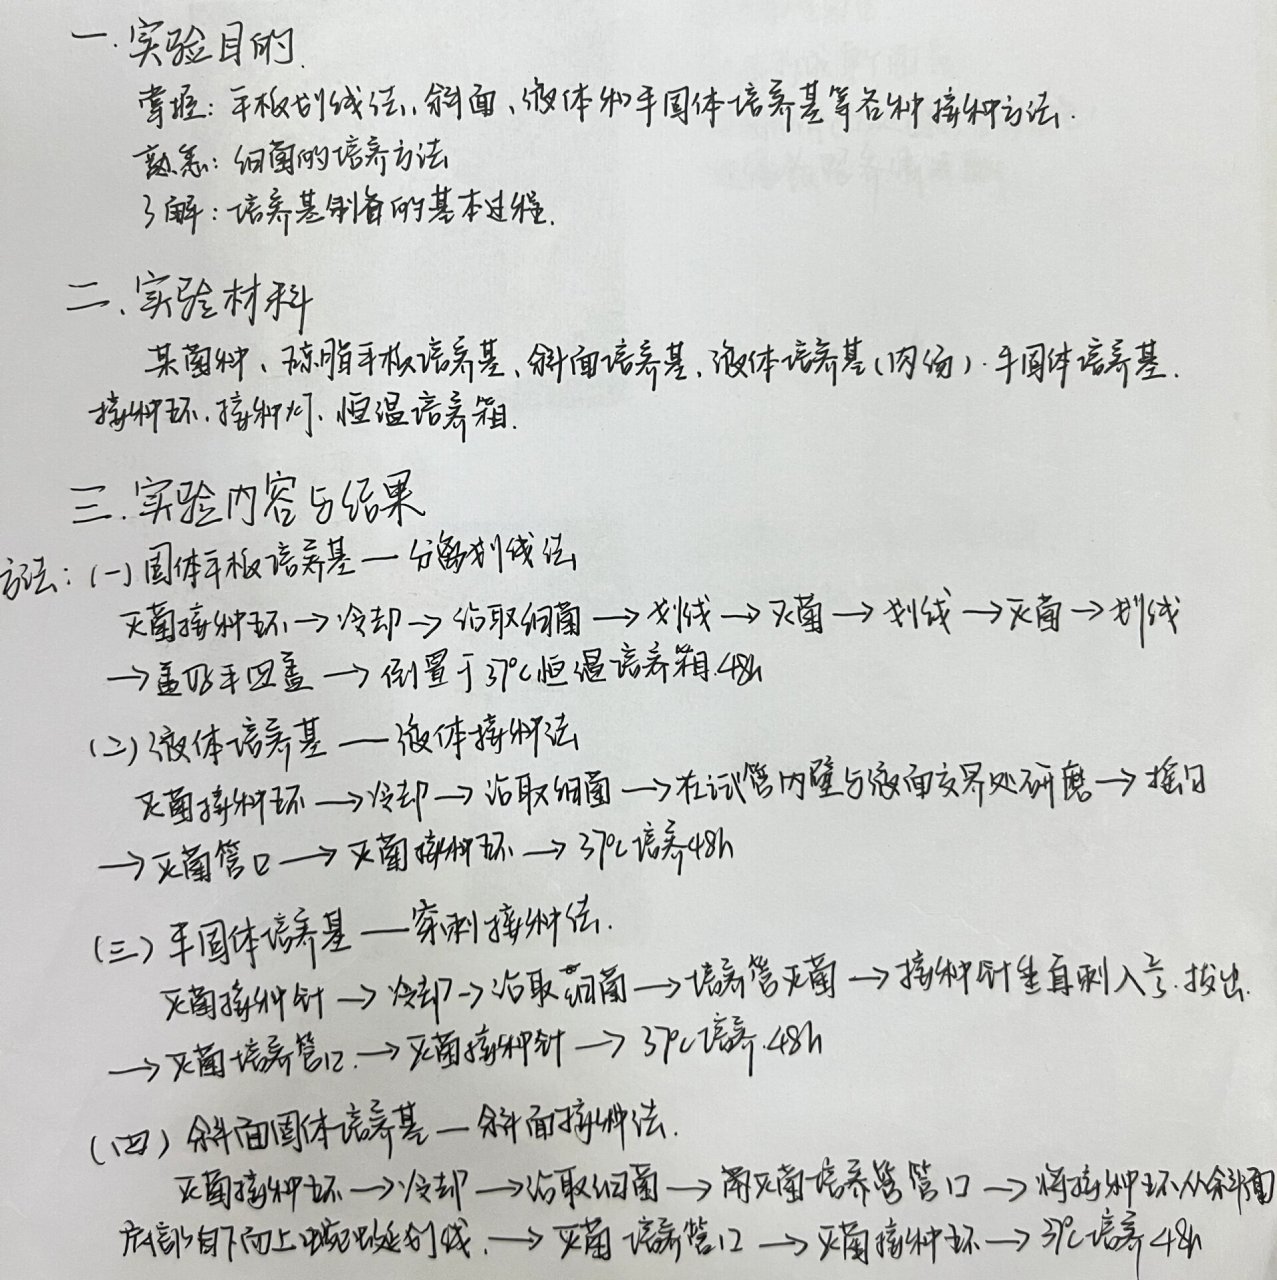 一.实验目的.
掌握：平板划线法、斜面、液体和半固体培养基等各种接种方法.
熟悉：细菌的培养方法
了解：培养基制备的基本过程.
二.实验材料
某菌种、琼脂平板培养基、斜面培养基、液体培养基(肉汤).半固体培养基.
接种环、接种灯、恒温培养箱.
三.实验内容与结果
方法：(一)固体平板培养基—分离划线法
灭菌接种环→冷却→沾取细菌→划线→灭菌→划线→灭菌→划线
→盖好平皿盖→倒置于37℃恒温培养箱.48h
(二)液体培养基—液体接种法
灭菌接种环→冷却→沾取细菌→在试管内壁与液面交界处研磨→摇匀
→灭菌管口→灭菌接种环→37℃培养48h
(三)半固体培养基—穿刺接种法.
灭菌接种针→冷却→沾取细菌→培养管灭菌→接种针垂直刺入⅔.拔出.
→灭菌培养管口.→灭菌接种针→37℃培养.48h
(四)斜面固体培养基—斜面接种法.
灭菌接种环→冷却→沾取细菌→灭菌培养管管口→将接种环从斜面
底部自下而上蜿蜒划线.→灭菌培养管口→灭菌接种环→37℃培养48h